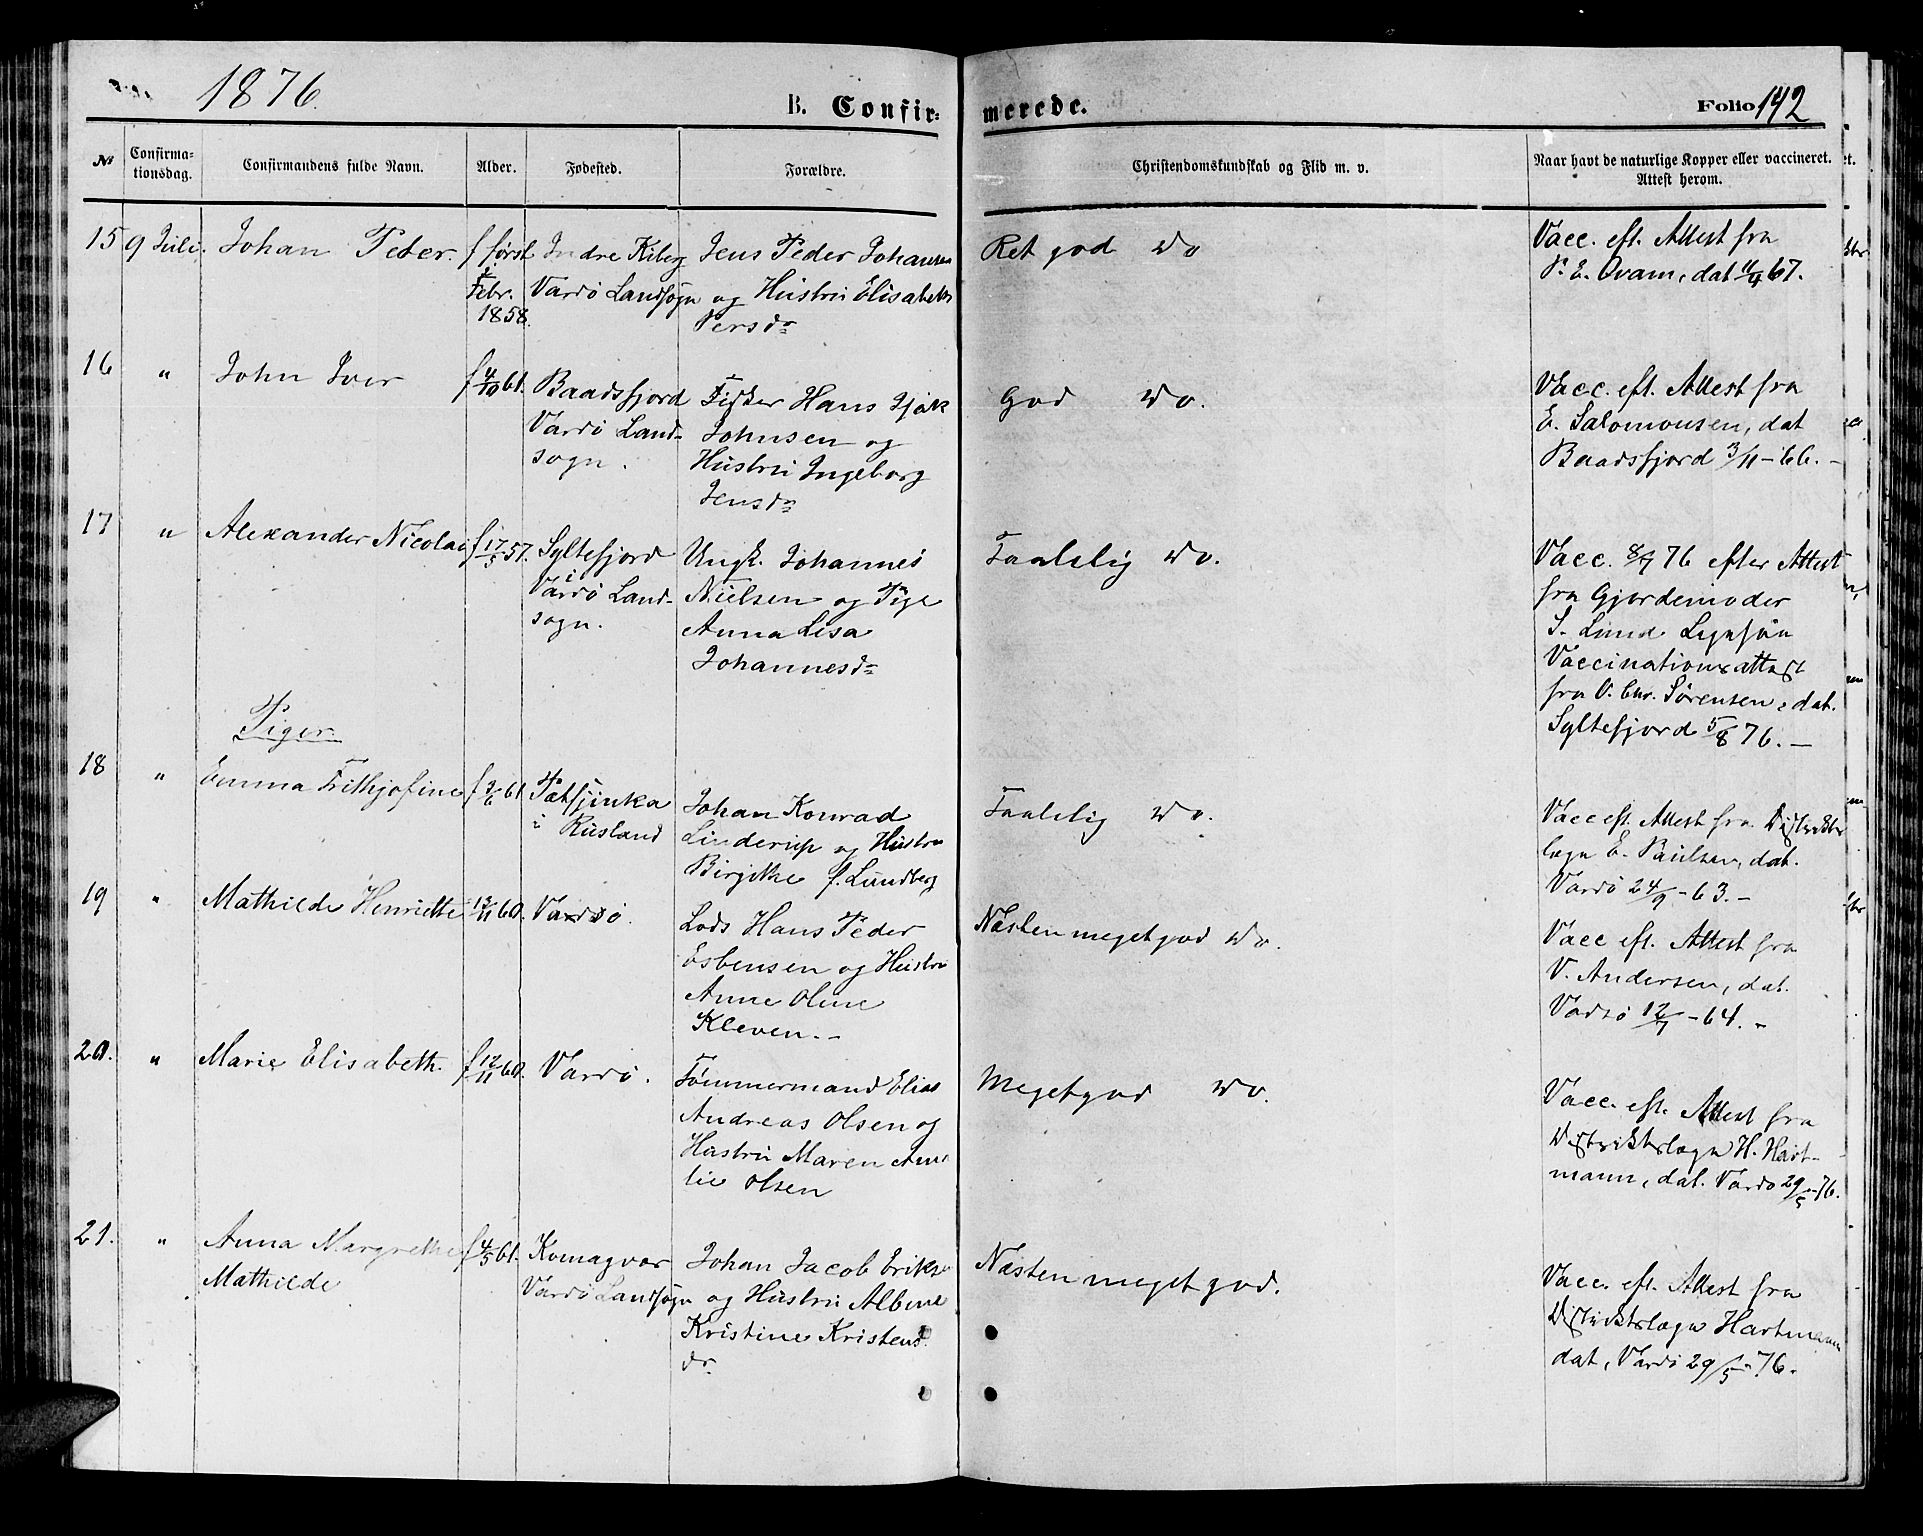 1876.
B. Confir-
merede.
Folio 142
№
Confirma-
tionsdag.
Confirmandens fulde Navn.
Alder.
Fødested.
Forældre.
Christendomskundskab og Flid m. v.
Naar havt de naturlige Kopper eller vaccineret.
Attest herom.
15 9 Juli. Johan Peder. f først Indre Kiberg Jens Peder Johansen Ret god Do Vacc. eft. Attest fra
i Febr. 1858. Vardö Landsogn og Hustru Elisabeth P. E. Qvam, dat 11/4 67.
Persdr
16 " John Iver f 4/10 61. Baadsfjord Fisker Hans Isak God Do. Vacc. eft. Attest fra
Vardö Land- Johnsen og E. Salomonsen, dat
sogn. Hustru Ingeborg Baadsfjord 3/11 - 66. -
Jensdr
17 " Alexander Nicolai f 17/5 57. Syltefjord Ungk. Johannes Taalelig Do. Vacc. 8/7 76 efter Attest
i Vardö Land- Nielsen og Pige fra Gjordemoder
sogn. Anna Lisa S. Lund
Johannesdr Vaccinationsattest
fra O. Chr. Sörensen, dat.
Syltefjord 5/8 76. -
Piger
18 " Emma Frithjofine f 2/6 61 i Rusland Johan Konrad Taalelig Do. Vacc eft. Attest fra Distrikts
Linderup og Hustru læge E. Paulsen, dat.
Birgitte f. Lundberg Vardö 24/9 - 63. -
19 " Mathilde Henriette 13/11 60. Vardö. Lods Hans Peder Næsten meget god Do. Vacc eft. Attest fra
Esbensen og Hustru V. Andersen, dat.
Anne Oline Vadsö 12/7 - 64. -
Kleven. -
20. " Marie Elisabeth. f 12/11 60. Vardö. Tömmermand Elias Meget god Do. Vacc. eft. Attest fra
Andreas Olsen og Distriktslæge H. Hart-
Hustru Maren Ame mann, dat. Vardö 29/5 - 76.
lie Olsen
21. " Anna Margrethe f 4/5 61. Komagvær Johan Jacob Eriksen Næsten meget god. Vacc. eft. Attest fra
Mathilde Vardö Landsogn og Hustru Albine Distriktslæge Hartmann
Kristine Kristens dat, Vardö 29/5 - 76.
dr.